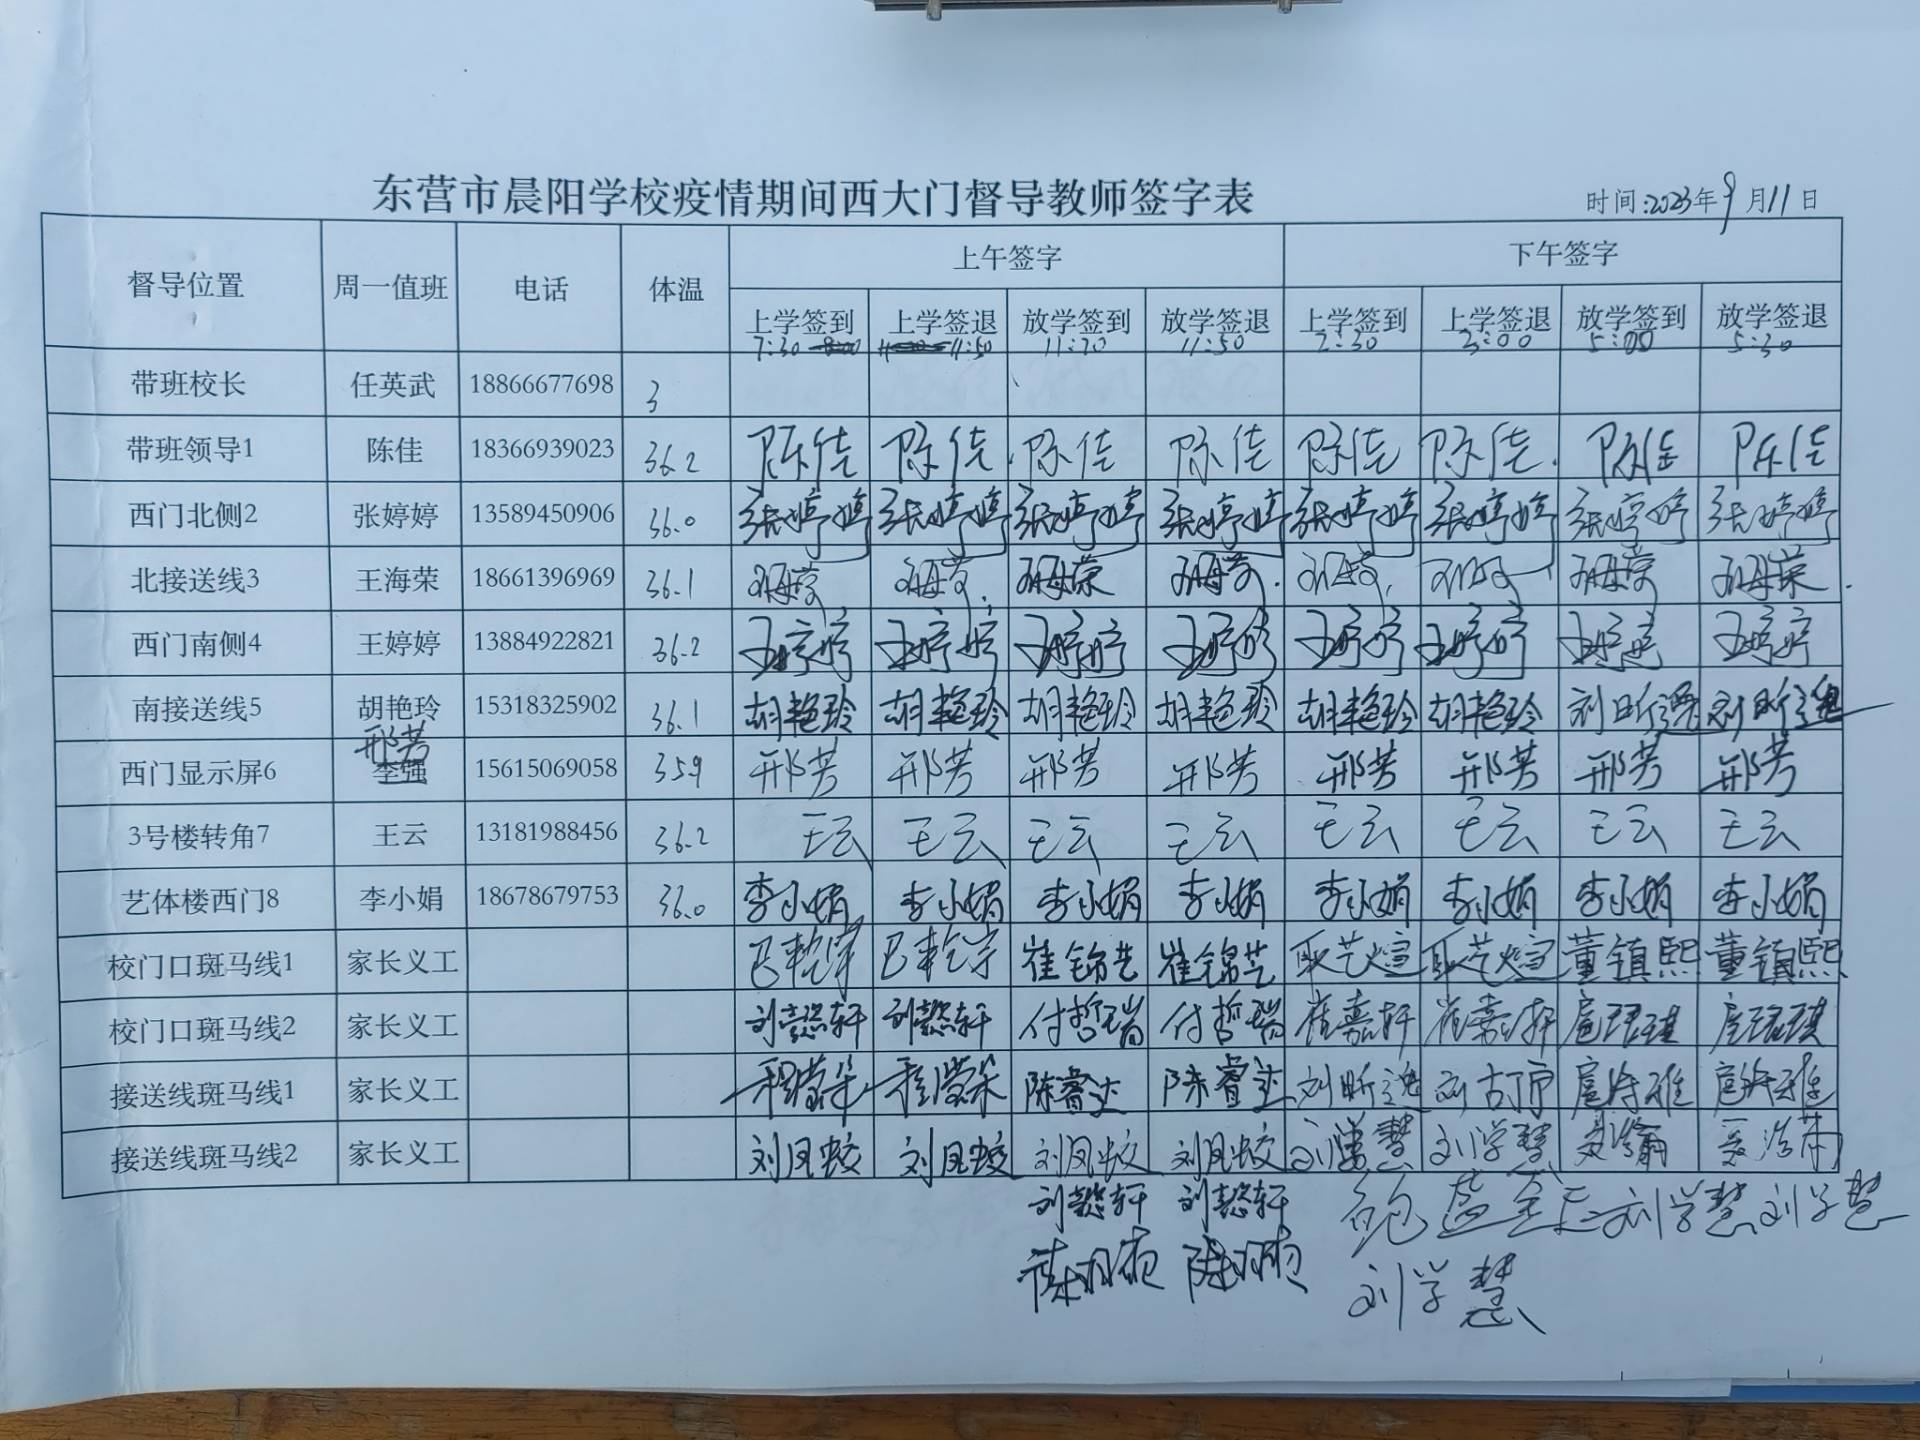 东营市晨阳学校疫情期间西大门督导教师签字表
时间:2023年9月11日
督导位置 周一值班 电话 体温 上午签字 下午签字
上学签到 上学签退 放学签到 放学签退 上学签到 上学签退 放学签到 放学签退
7:30 11:50 11:20 11:50 2:30 3:00 5:00 5:30
带班校长 任英武 18866677698 3
带班领导1 陈佳 18366939023 36.2 陈佳 陈佳 陈佳 陈佳 陈佳 陈佳 陈佳 陈佳
西门北侧2 张婷婷 13589450906 36.0 张婷婷 张婷婷 张婷婷 张婷婷 张婷婷 张婷婷 张婷婷 张婷婷
北接送线3 王海荣 18661396969 36.1 王海荣 王海荣 王海荣 王海荣 王海荣 王海荣 王海荣 王海荣
西门南侧4 王婷婷 13884922821 36.2 王婷婷 王婷婷 王婷婷 王婷婷 王婷婷 王婷婷 王婷婷 王婷婷
南接送线5 胡艳玲 15318325902 36.1 胡艳玲 胡艳玲 胡艳玲 胡艳玲 胡艳玲 胡艳玲 刘昕逸 刘昕逸
邢芳
西门显示屏6 李强 15615069058 35.9 邢芳 邢芳 邢芳 邢芳 邢芳 邢芳 邢芳 邢芳
3号楼转角7 王云 13181988456 36.2 王云 王云 王云 王云 王云 王云 王云 王云
艺体楼西门8 李小娟 18678679753 36.0 李小娟 李小娟 李小娟 李小娟 李小娟 李小娟 李小娟 李小娟
校门口斑马线1 家长义工 崔锦艺 崔锦艺 董镇熙 董镇熙
校门口斑马线2 家长义工 刘懿轩 刘懿轩 付哲瑞 付哲瑞 崔嘉轩 崔嘉轩
接送线斑马线1 家长义工 陈睿达 陈睿达 刘昕逸
接送线斑马线2 家长义工 刘凤蛟 刘凤蛟 刘凤蛟 刘凤蛟 刘学慧 刘学慧
刘懿轩 刘懿轩 刘学慧 刘学慧
刘学慧